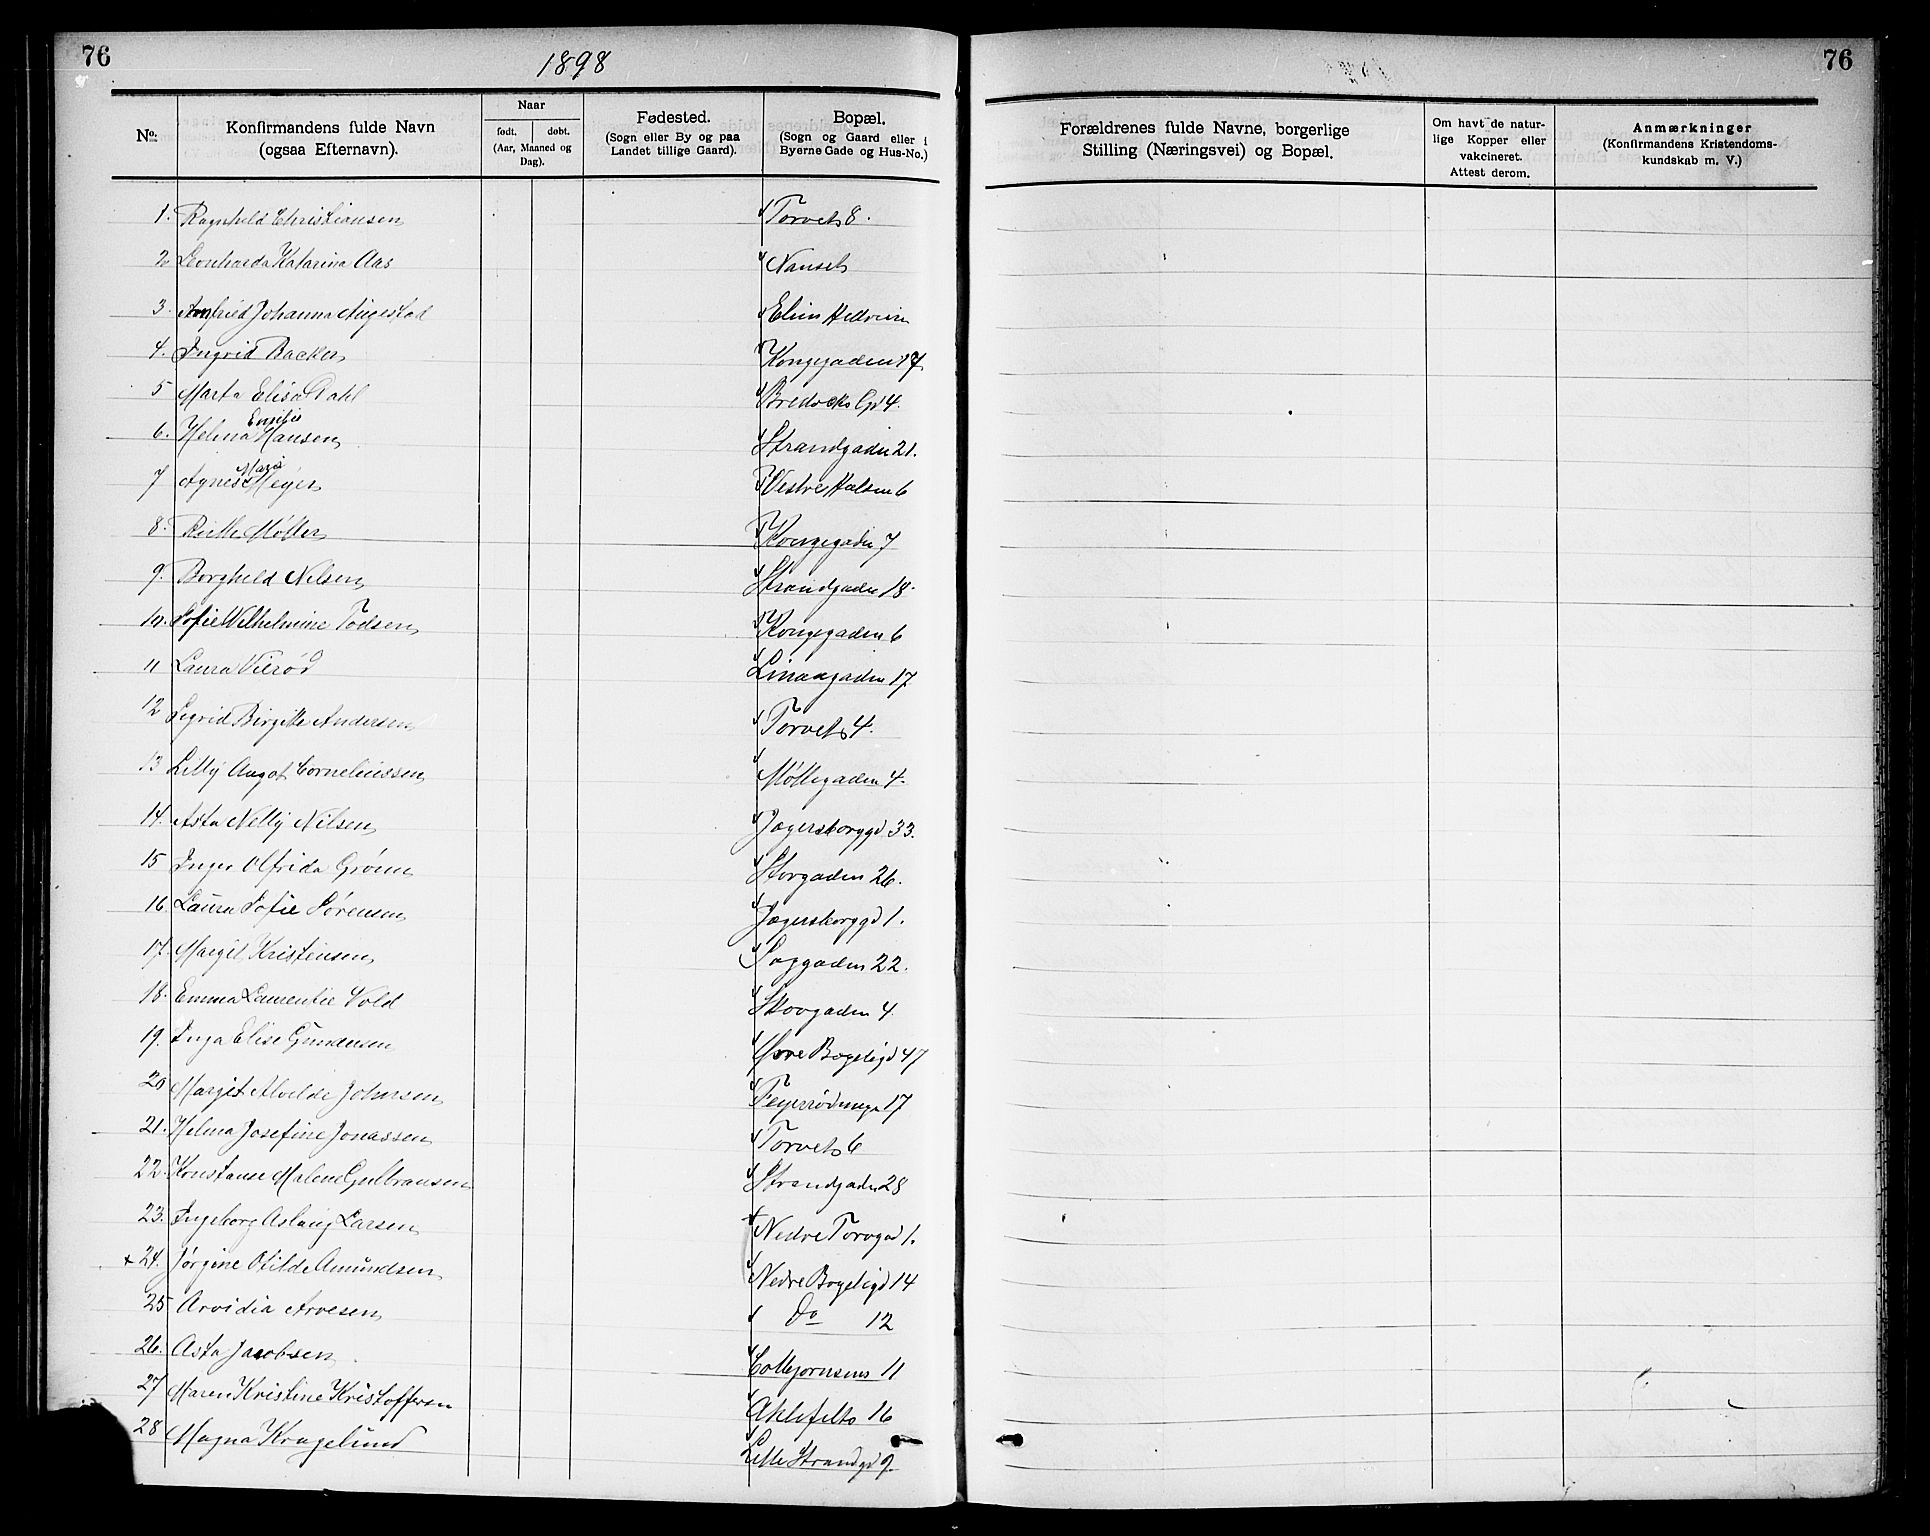 76
1898
76
No.
Konfirmandens fulde Navn
(ogsaa Efternavn).
Naar
født. døbt.
(Aar, Maaned og
Dag).
Fødested.
(Sogn eller By og paa
Landet tillige Gaard).
Bopæl.
(Sogn og Gaard eller i
Byerne Gade og Hus-No.)
Forældrenes fulde Navne, borgerlige
Stilling (Næringsvei) og Bopæl.
Om havt de natur-
lige Kopper eller
vakcineret.
Attest derom.
Anmærkninger
(Konfirmandens Kristendoms-
kundskab m. V.)
1. Ragnhild Christiansen Torvet 8.
2 Leonharda Katarina Aas Nanset
3. Anfried Johanna Augestad Elim
4. Ingrid Backer Kongegaden 17
5 Marta Elisa Dahl 4.
6. Helma Emilie Hansen Strandgaden 21.
7 Agnes Marie Meyer Vestre Halsen 6
8. Møller Kongegaden 7
9. Borghild Nilsen Strandgaden 18.
10. Sofie Wilhelmine Todsen Kongegaden 6
11 Laura Vierød Linaagaden 17
12 Sigrid Birgitte Andersen Torvet 4.
13 Lilly Aagot Corneliussen Møllegaden 4.
14. Asta Nelly Nilsen Jegersborggd 33.
15 Inger Olfrida Grønn Storgaden 26.
16 Laura Sofie Sørensen Jegersborggd 1.
17. Margit Kristensen Saggaden 22.
18. Emma Laurentie Vold Skovgaden 4
19. Inga Elise Gundersen Øvre Bøgeligd 47
20 Margit Alvilde Johnsen 17
21. Helma Josefine Jonassen Torvet 6
22. Konstanse Malene Gulbransen Strandgaden 28
23. Ingeborg Aslaug Larsen Nedre Torvgd 1.
+ 24. Jørgine Otilde Amundsen Nedre Bøgeligd 14
25 Arvidia Arvesen Do 12
26. Asta Jacobsen Colbjørnsens 11
27 Maren Kristine Kristoffersen Aklefelts 16
28 Magna Kragelund Lille Strandgd 9.